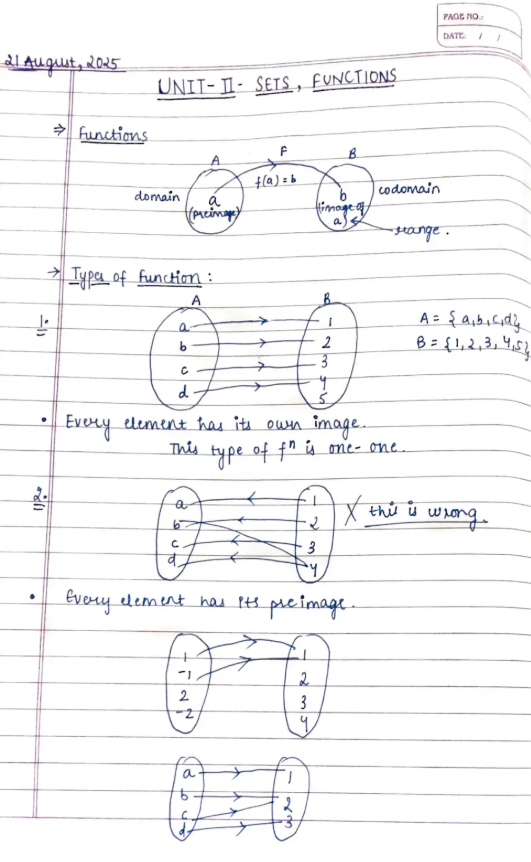 PAGE NO.:
DATE: / /
21 August, 2025
UNIT-II- SETS, FUNCTIONS
⇒ Functions
A F B
f(a) = b
domain a b codomain
(preimage) (image of
a)
range.
→ Types of function:
A B
1.
a 1
b 2
c 3
d 4
5
A = {a,b,c,d}
B = {1,2,3,4,5}
• Every element has its own image.
This type of fⁿ is one-one.
2.
a 1
b 2 X this is wrong.
c 3
d 4
• Every element has its preimage.
1 1
-1 2
2 3
-2 4
a 1
b 2
c 3
d